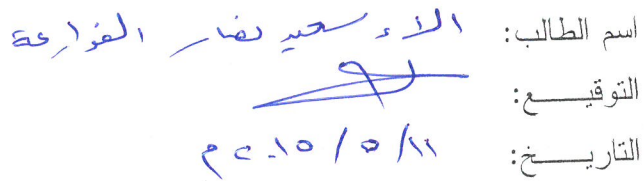 اسم الطالب: الاء سعيد نصار الفوارعة
التوقيـــع:
التاريـــخ: ١١/٥/٢٠١٥م